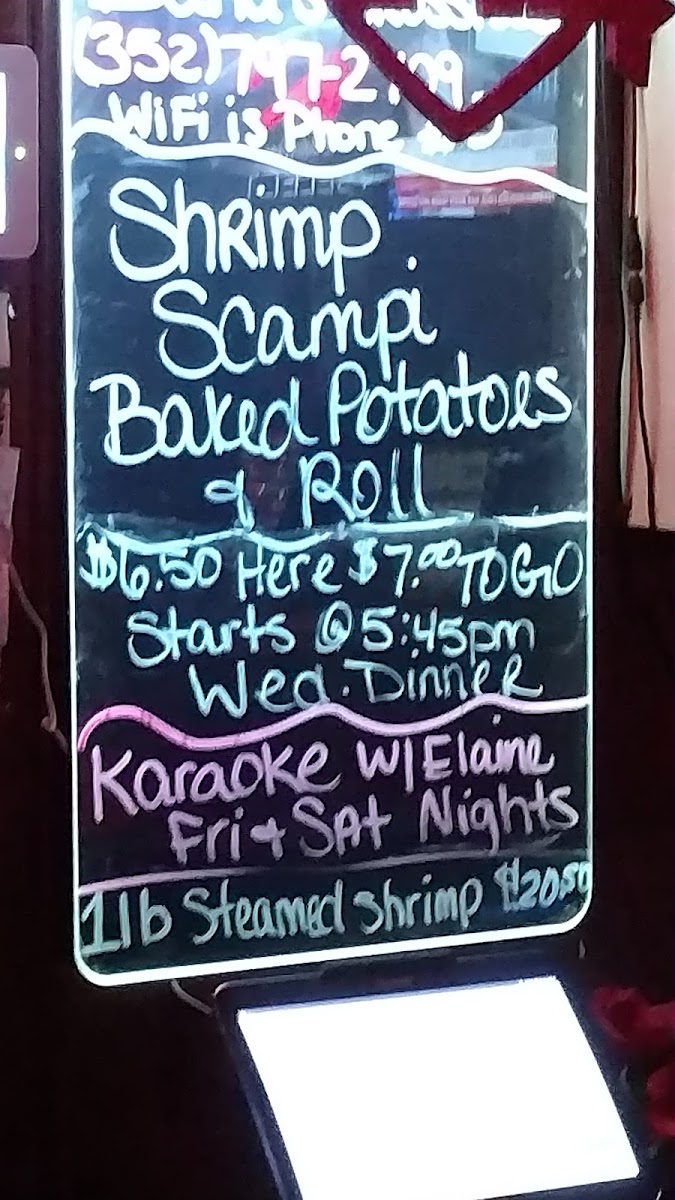 (352)797-2
WiFi is Phone
Shrimp
Scampi
Baked Potatoes
& Roll
$6.50 Here $7.00 TO GO
Starts @ 5:45pm
Wed. Dinner
Karaoke W/Elaine
Fri + Sat Nights
1 lb Steamed Shrimp $20.50